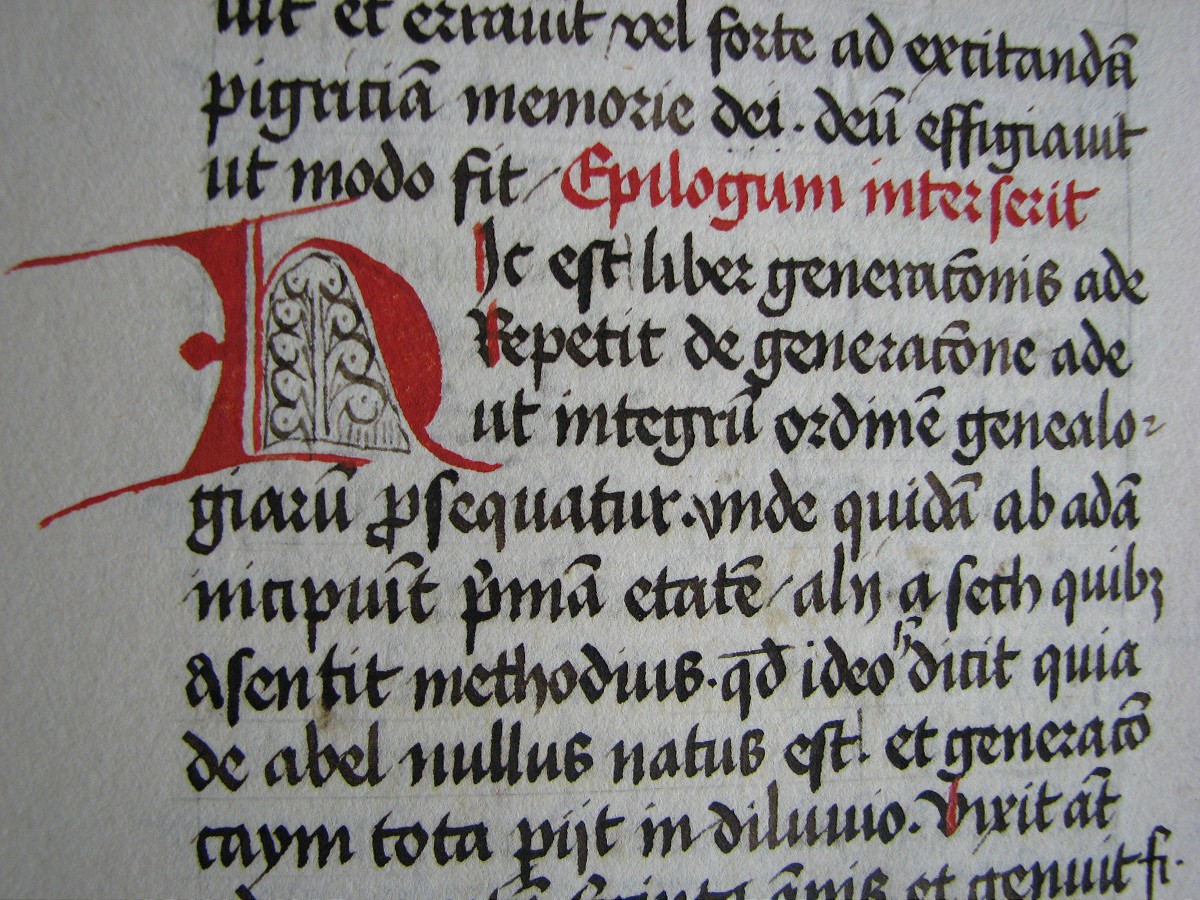 uit et errauit / vel forte ad excitandā
pigriciā memorie dei · deū effigiauit
ut modo fit / Epilogum interserit
HIc est liber generacōnis ade
Repetit de generacōne ade
ut integrū ordinē genealo-
giarū ꝓsequatur · vnde quidā ab adā
incipiūt p̄mā etatē / alij a seth quibꝫ
asentit methodius · qd̄ ideo dicit quia
de abel nullus natus est · et generacō
caym tota ꝑijt in diluuio · Vixit āt
et genuit fi·